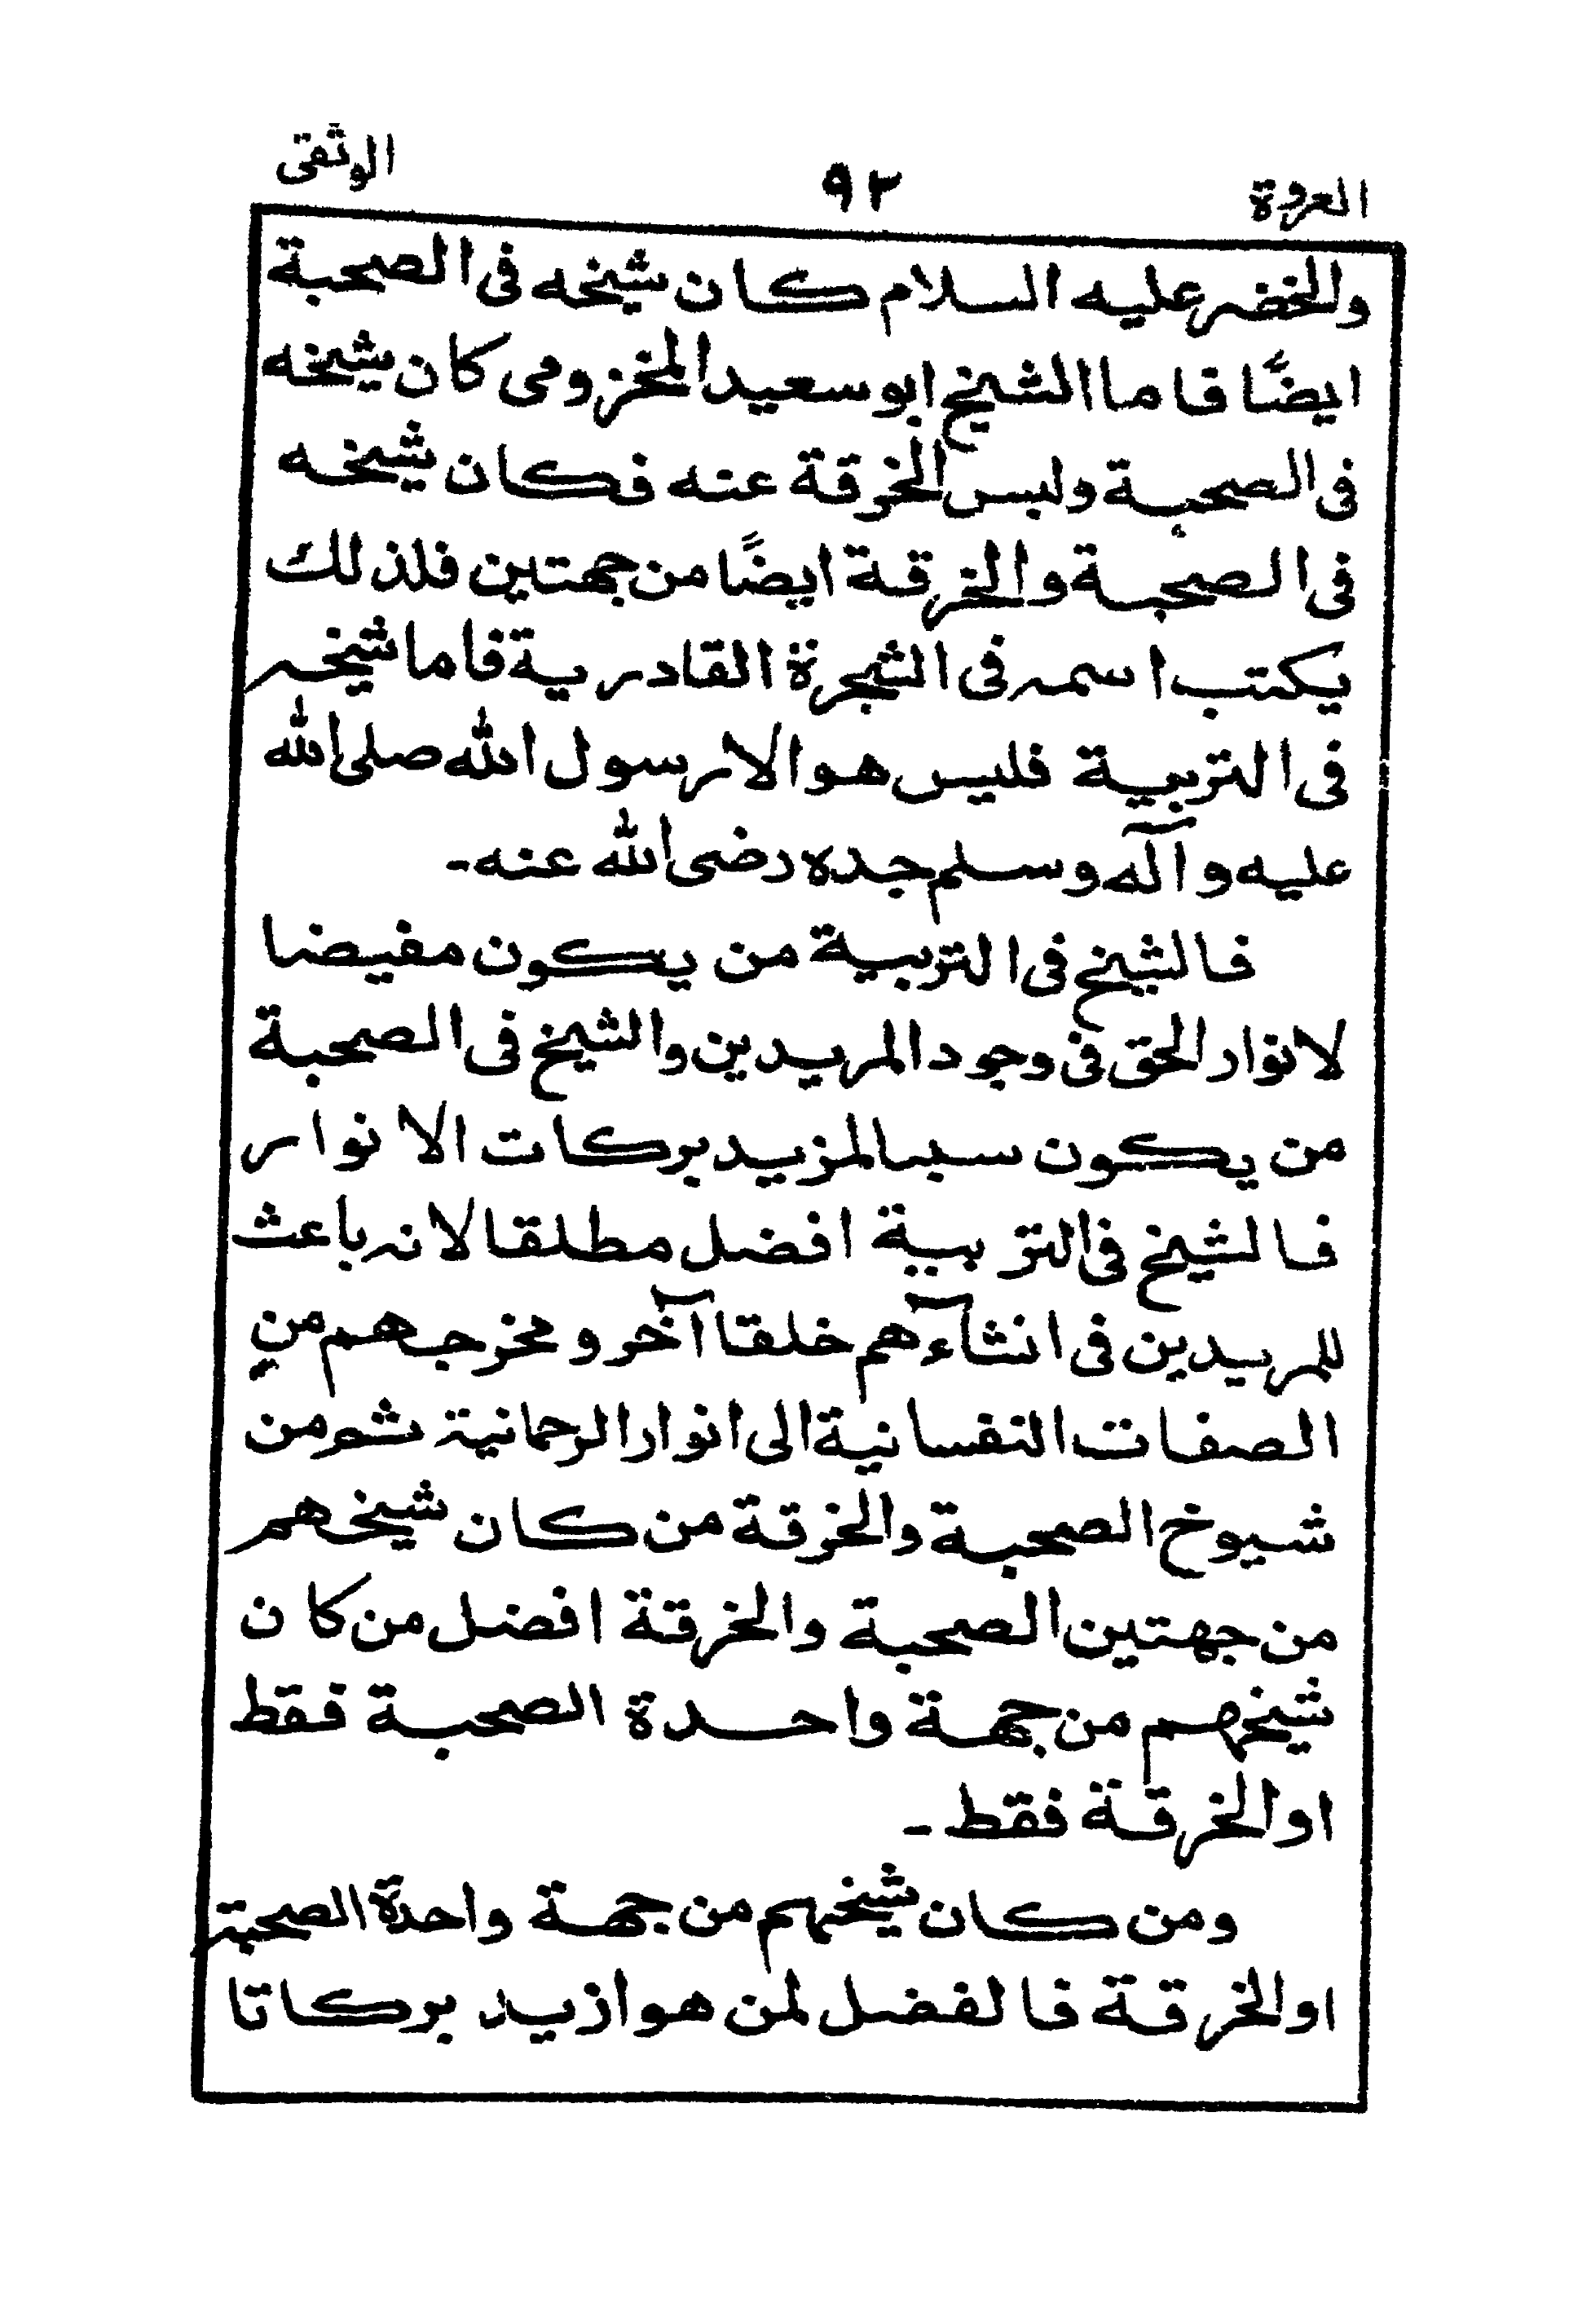 العروة ٩٢ الوثقى
والخضر عليه السلام كان شيخه فى الصحبة
ايضًا فاما الشيخ ابو سعيد المخزومى كان شيخه
فى الصحبة ولبس الخرقة عنه فكان شيخه
فى الصحبة والخرقة ايضًا من جهتين فلذلك
يكتب اسمه فى الشجرة القادرية فاما شيخه
فى التربية فليس هو الا رسول الله صلى الله
عليه وآله وسلم جده رضى الله عنه -
فالشيخ فى التربية من يكون مفيضا
لانوار الحق فى وجود المريدين والشيخ فى الصحبة
من يكون سببا لمزيد بركات الانوار
فالشيخ فى التربية افضل مطلقا لانه باعث
للمريدين فى انشآءهم خلقا آخر ومخرجهم من
الصفات النفسانية الى انوار الرحمانية ثم من
شيوخ الصحبة والخرقة من كان شيخهم
من جهتين الصحبة والخرقة افضل من كان
شيخهم من جهة واحدة الصحبة فقط
او الخرقة فقط -
ومن كان شيخهم من جهة واحدة الصحبة
او الخرقة فالفضل لمن هو ازيد بركاتا